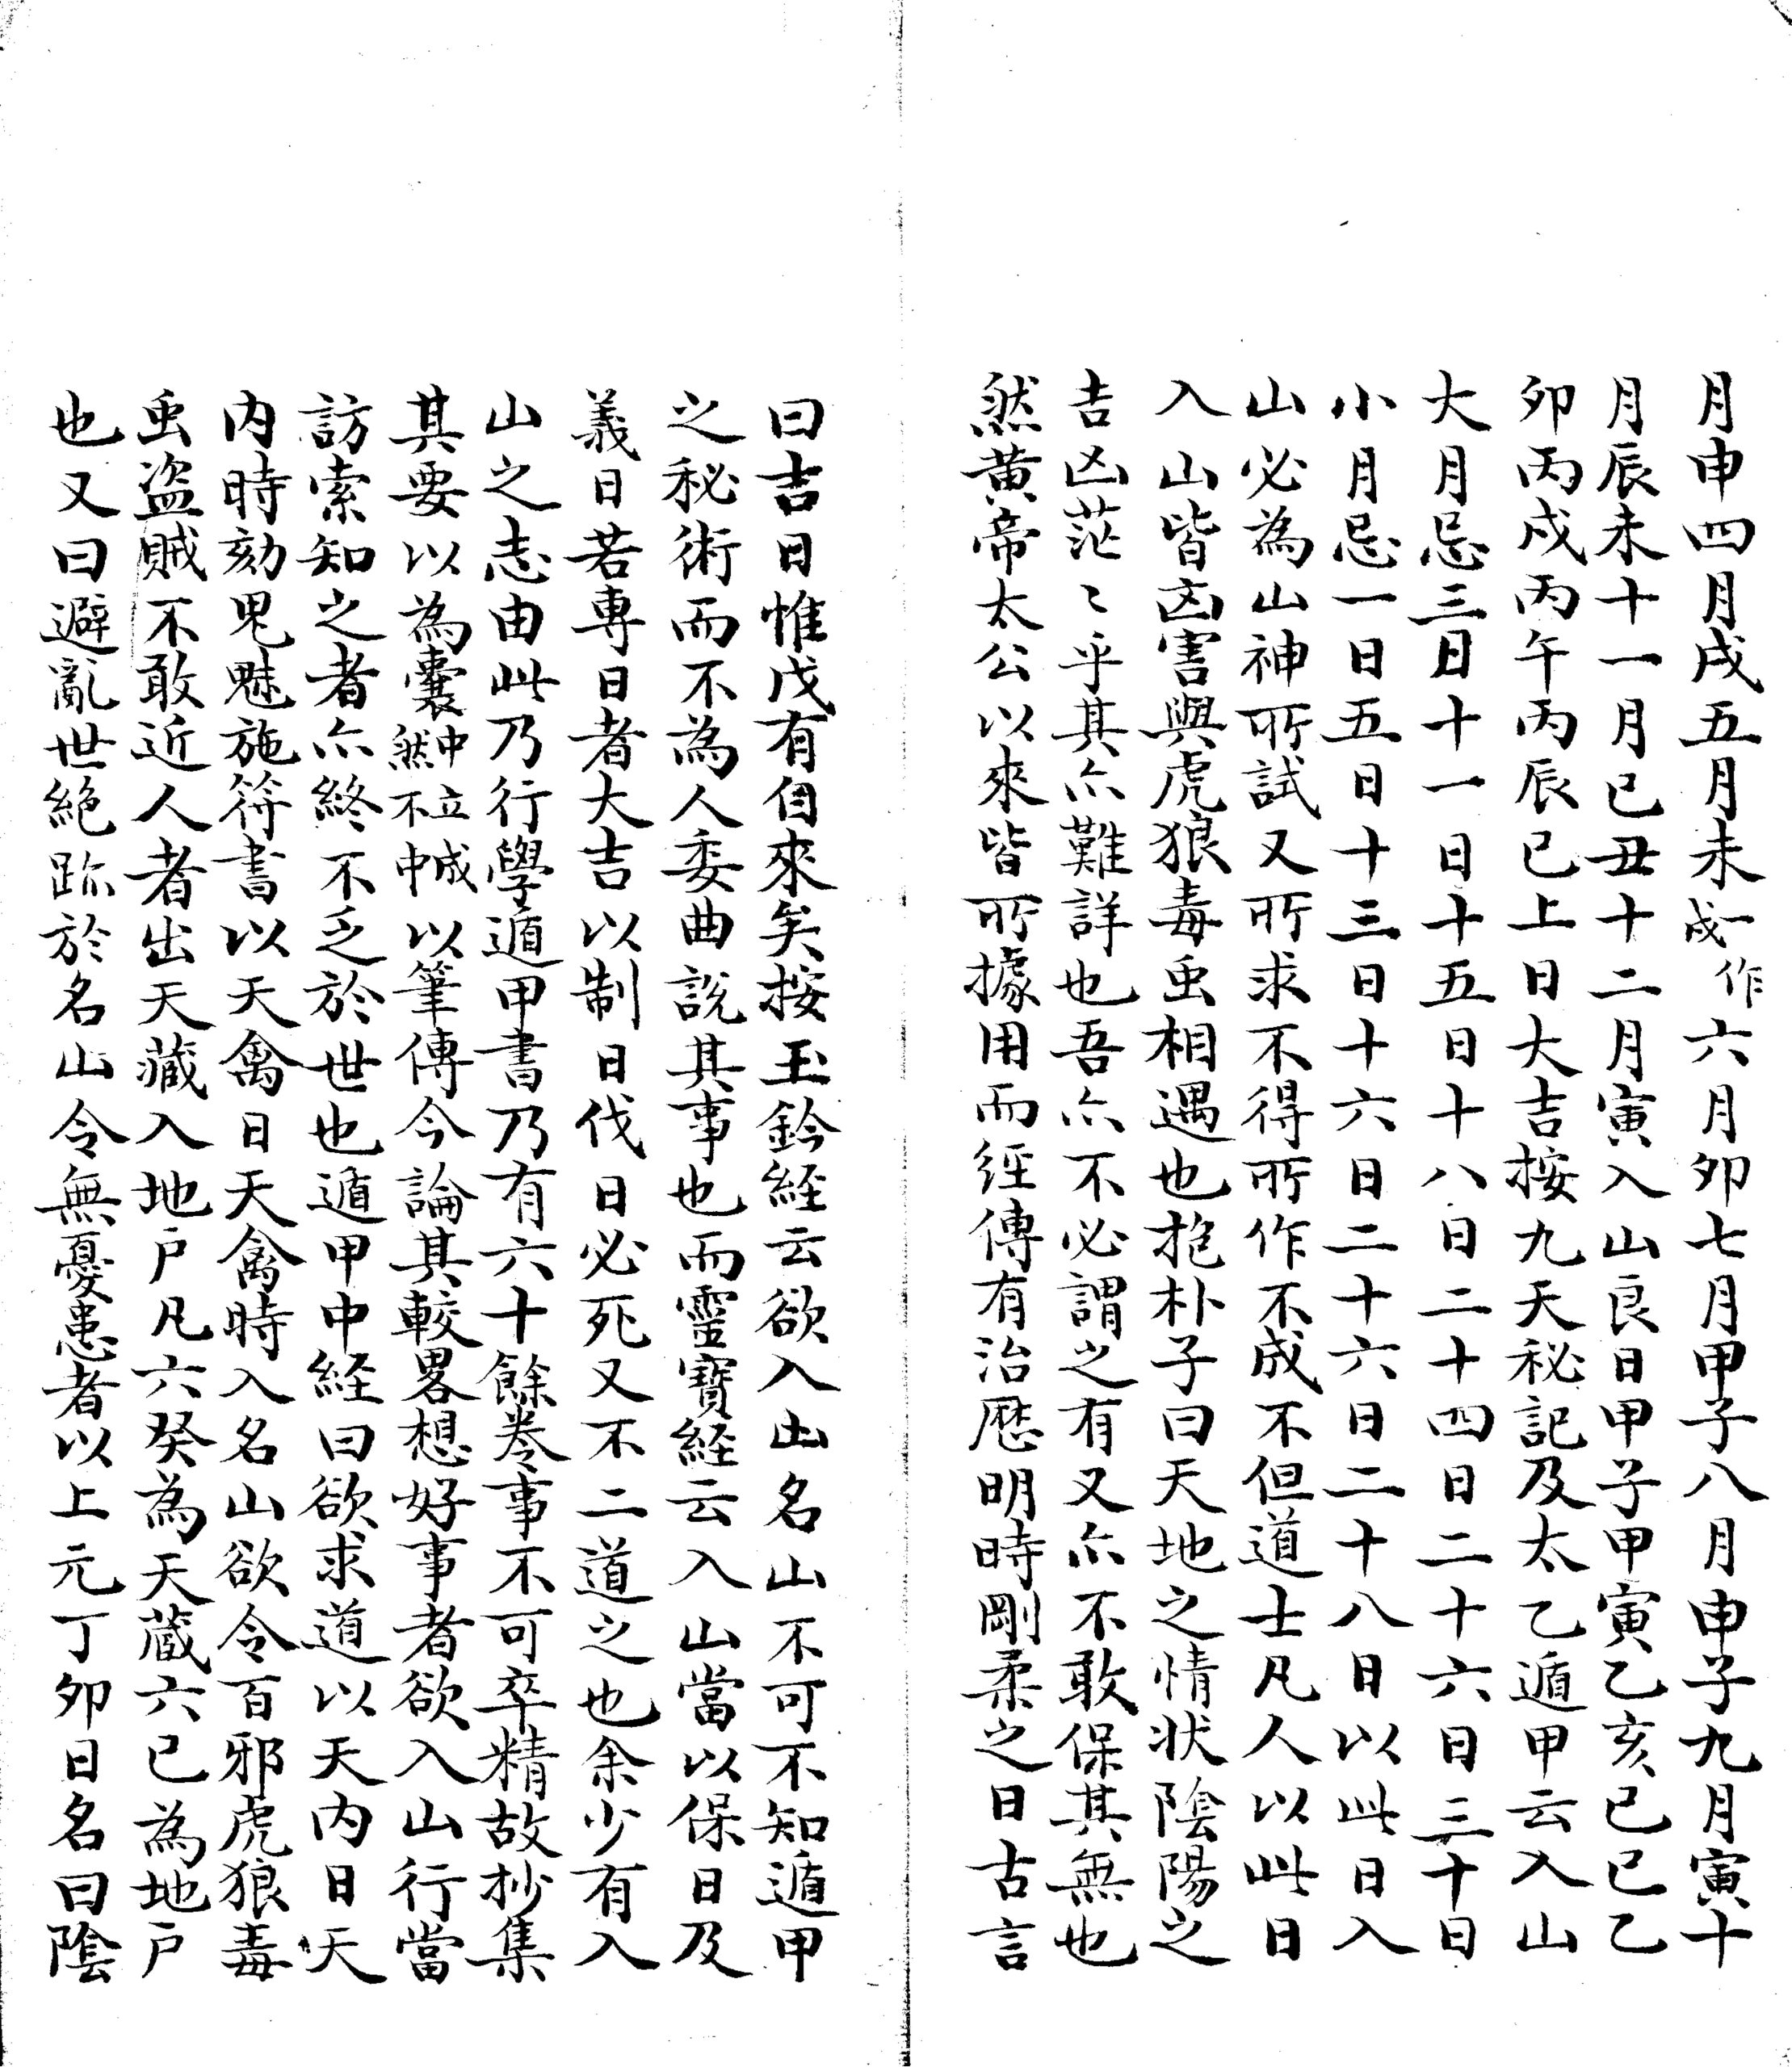 月申四月戌五月未一作戌六月卯七月甲子八月申子九月寅十
月辰未十一月已丑十二月寅入山良日甲子甲寅乙亥已巳乙
卯丙戌丙午丙辰已上日大吉按九天秘記及太乙遁甲云入山
大月忌三日十一日十五日十八日二十四日二十六日三十日
小月忌一日五日十三日十六日二十六日二十八日以此日入
山必為山神所試又所求不得所作不成不但道士凡人以此日
入山皆凶害與虎狼毒虫相遇也抱朴子曰天地之情状陰陽之
吉凶茫〻乎其亦難詳也吾亦不必謂之有又亦不敢保其無也
然黄帝太公以來皆所據用而経傳有治厯明時剛柔之日古言
曰吉日惟戊有自來矣按玉鈐経云欲入出名山不可不知遁甲
之秘術而不為人委曲説其事也而靈寶経云入山當以保日及
義日若專日者大吉以制日伐日必死又不二道之也余少有入
山之志由此乃行學遁甲書乃有六十餘卷事不可卒精故抄集
其要以為囊中立成然不中以筆傳今論其較畧想好事者欲入山行當
訪索知之者亦終不乏於世也遁甲中経曰欲求道以天内日天
内時劾鬼魅施符書以天禽日天禽時入名山欲令百邪虎狼毒
虫盗賊不敢近人者出天藏入地户凡六癸為天蔵六已為地户
也又曰避亂世絶跡於名山令無憂患者以上元丁卯日名曰陰